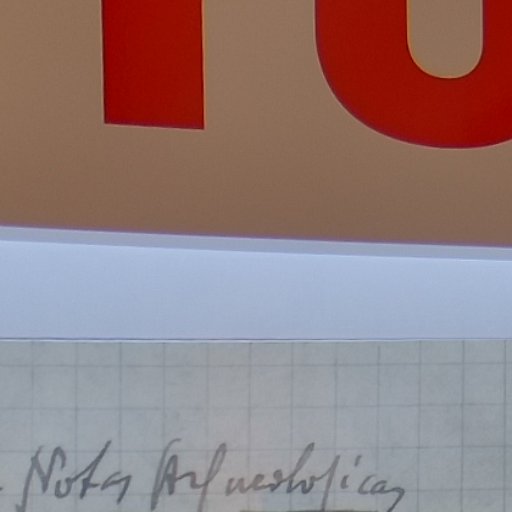 Notas Arqueologicas